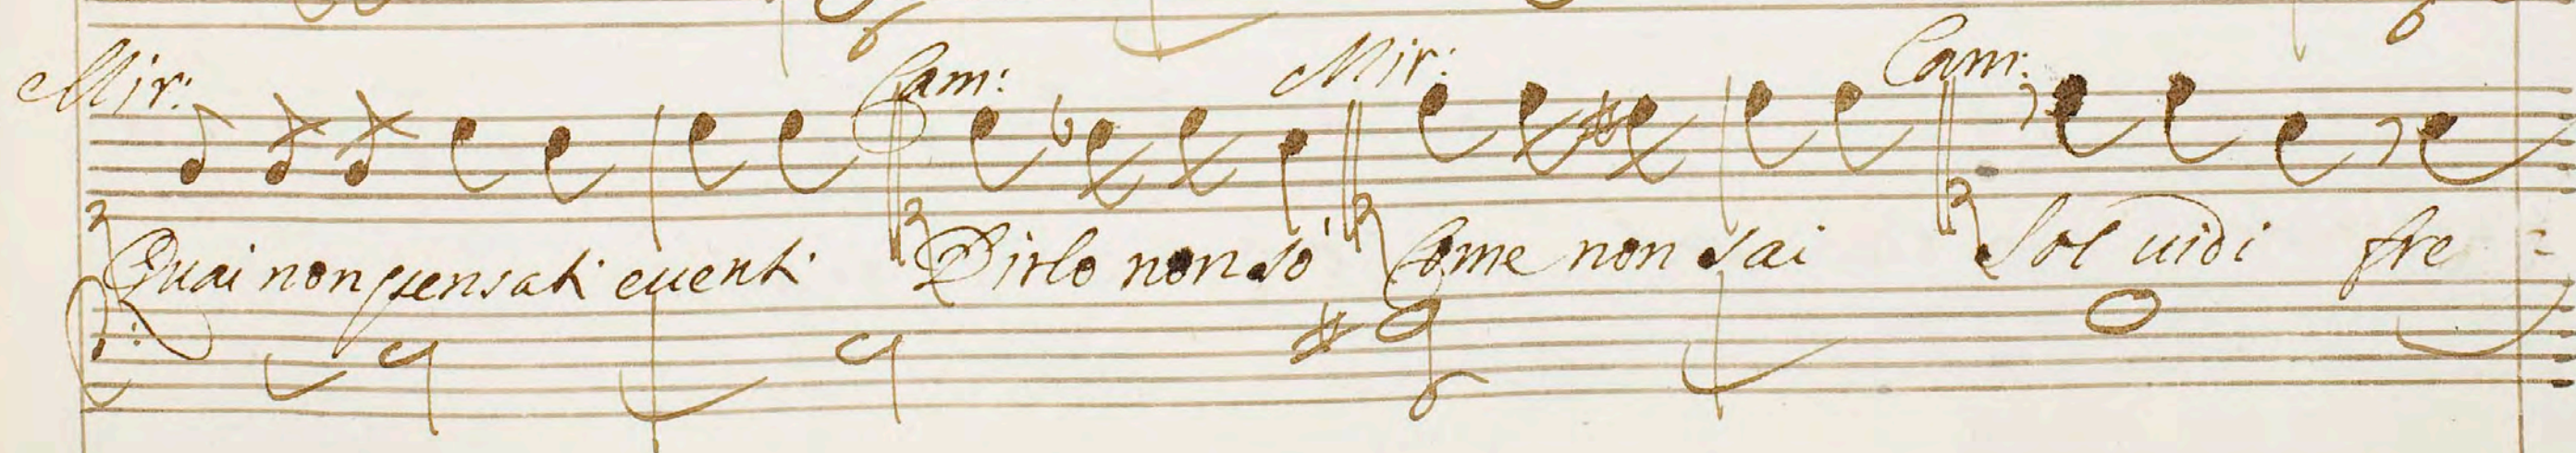 Mir: Cam: Mir: Cam:
Quai non pensati euenti Dirlo non so' Come non sai Sol uidi fre =